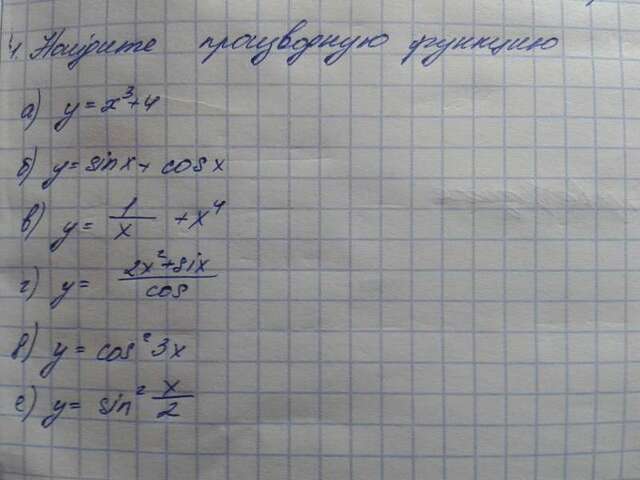 4. Найдите производную функцию
а) y = x³+4
б) y = sin x + cos x
в) y = 1/x + x⁴
г) y = 2x²+six/cos
д) y = cos² 3x
е) y = sin² x/2